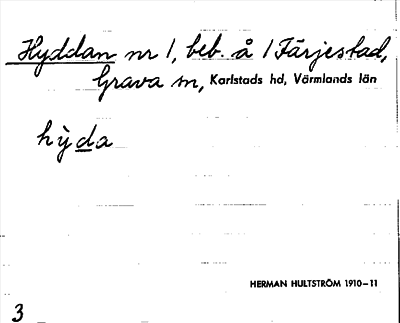 Hyddan nr 1, beb. å 1 Färjestad,
Grava sn, Karlstads hd, Värmlands län
hỳda
HERMAN HULTSTRÖM 1910-11
3